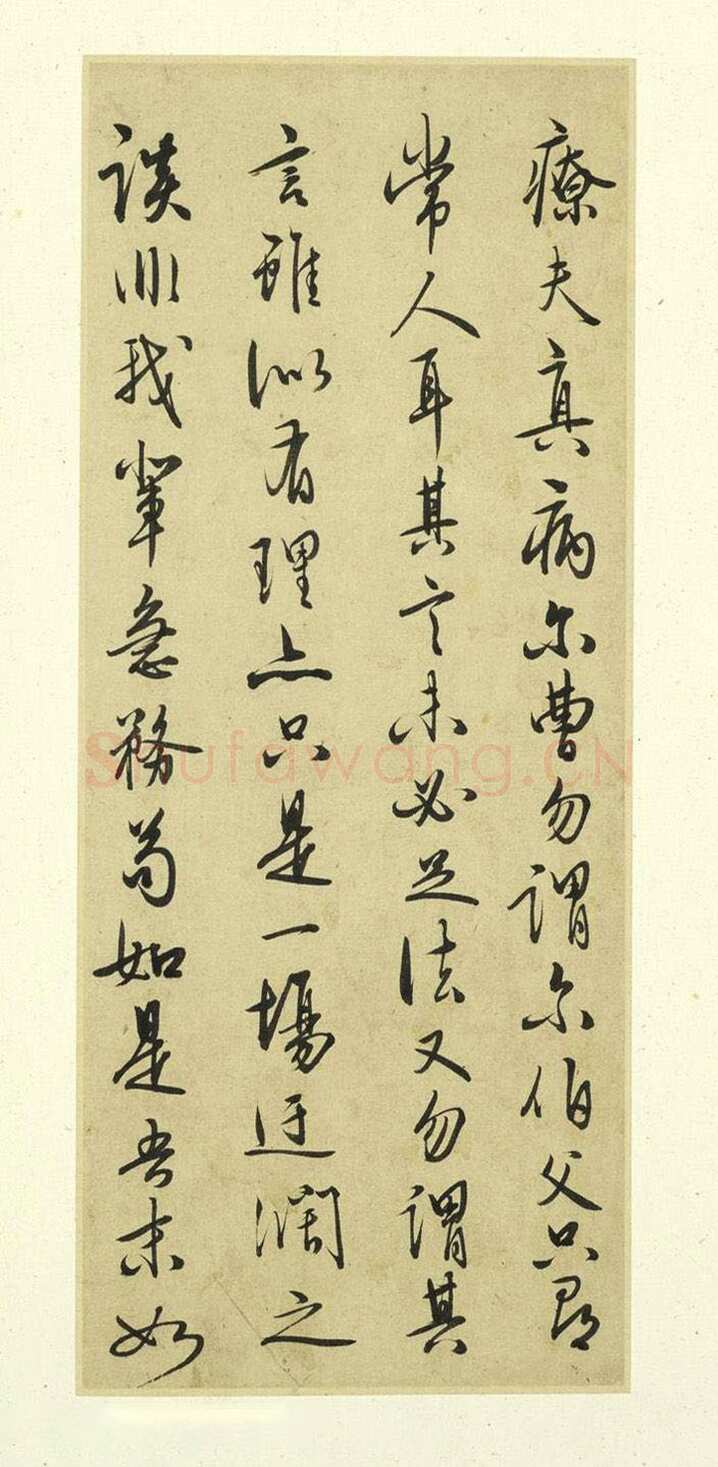 療夫真病尔曹勿謂尔伯父只尋
常人耳其言未必足法又勿謂其
言雖似有理亦只是一場迂濶之
談非我輩急務苟如是吾末如
Shufawang.CN